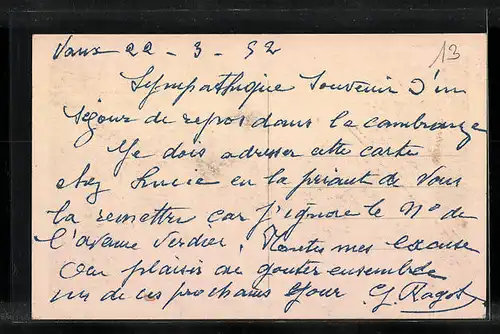 Vaux 22 - 3 - 52
13
Sympathique souvenir d'un
séjour de repos dans la campagne
Je dois adresser cette carte
chez Lucie en la priant de vous
la remettre car j'ignore le N° de
l'avenue Verdier. mes excuse
Au plaisir de gouter ensemble
un de ces prochains jour. G. Ragot